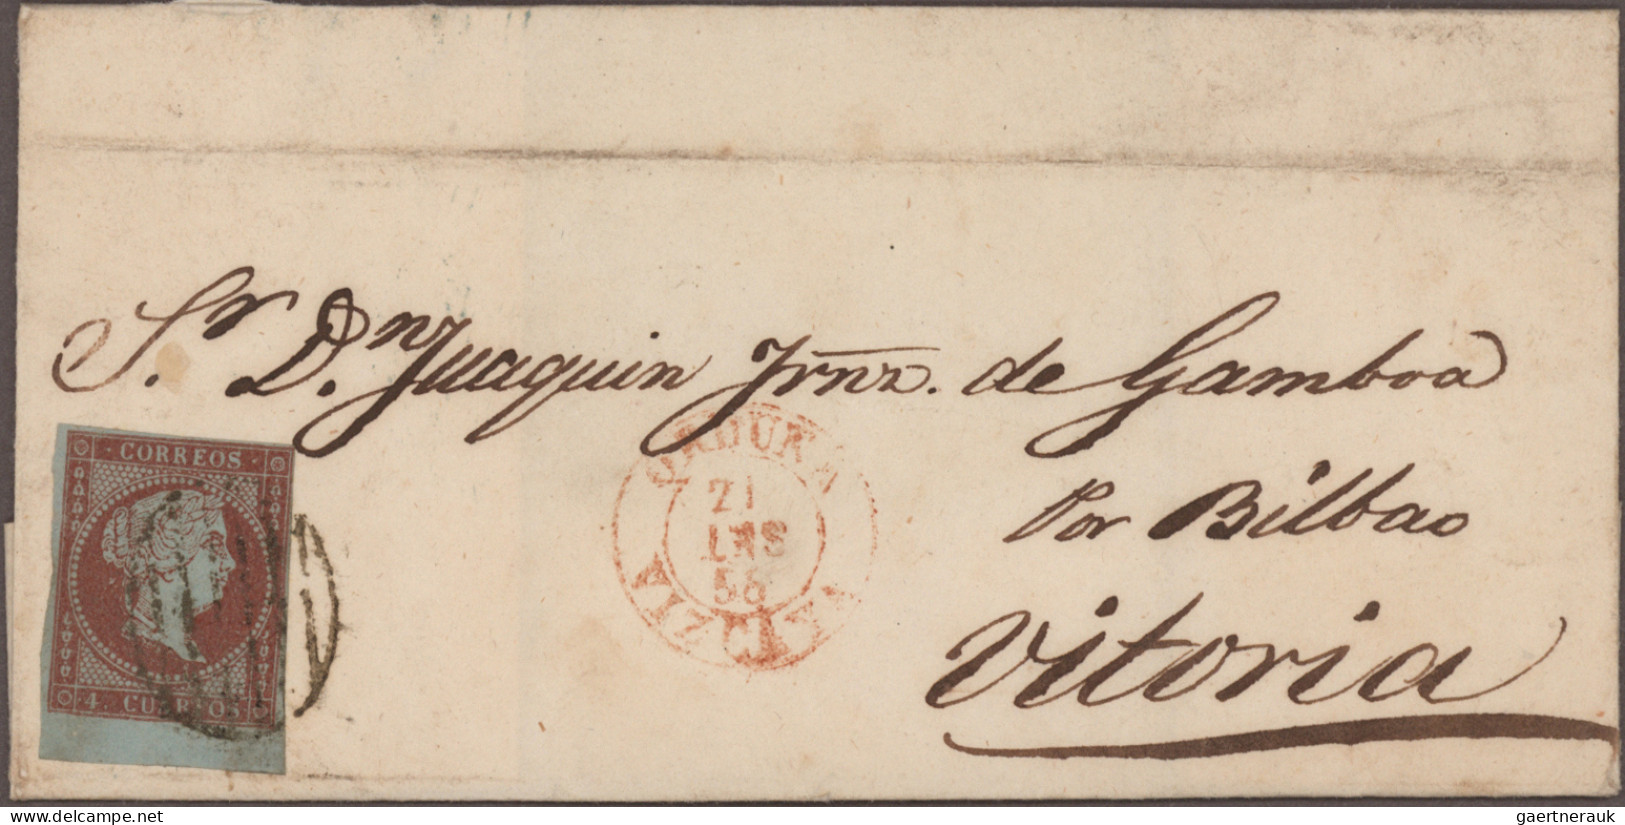 Sr. Dn. Juaquin Frnz. de Gamboa
Por Bilbao
Vitoria
CORREOS
4 CUARTOS
ORDUÑA
21
SET
56
VIZCAYA
gaertnerauk